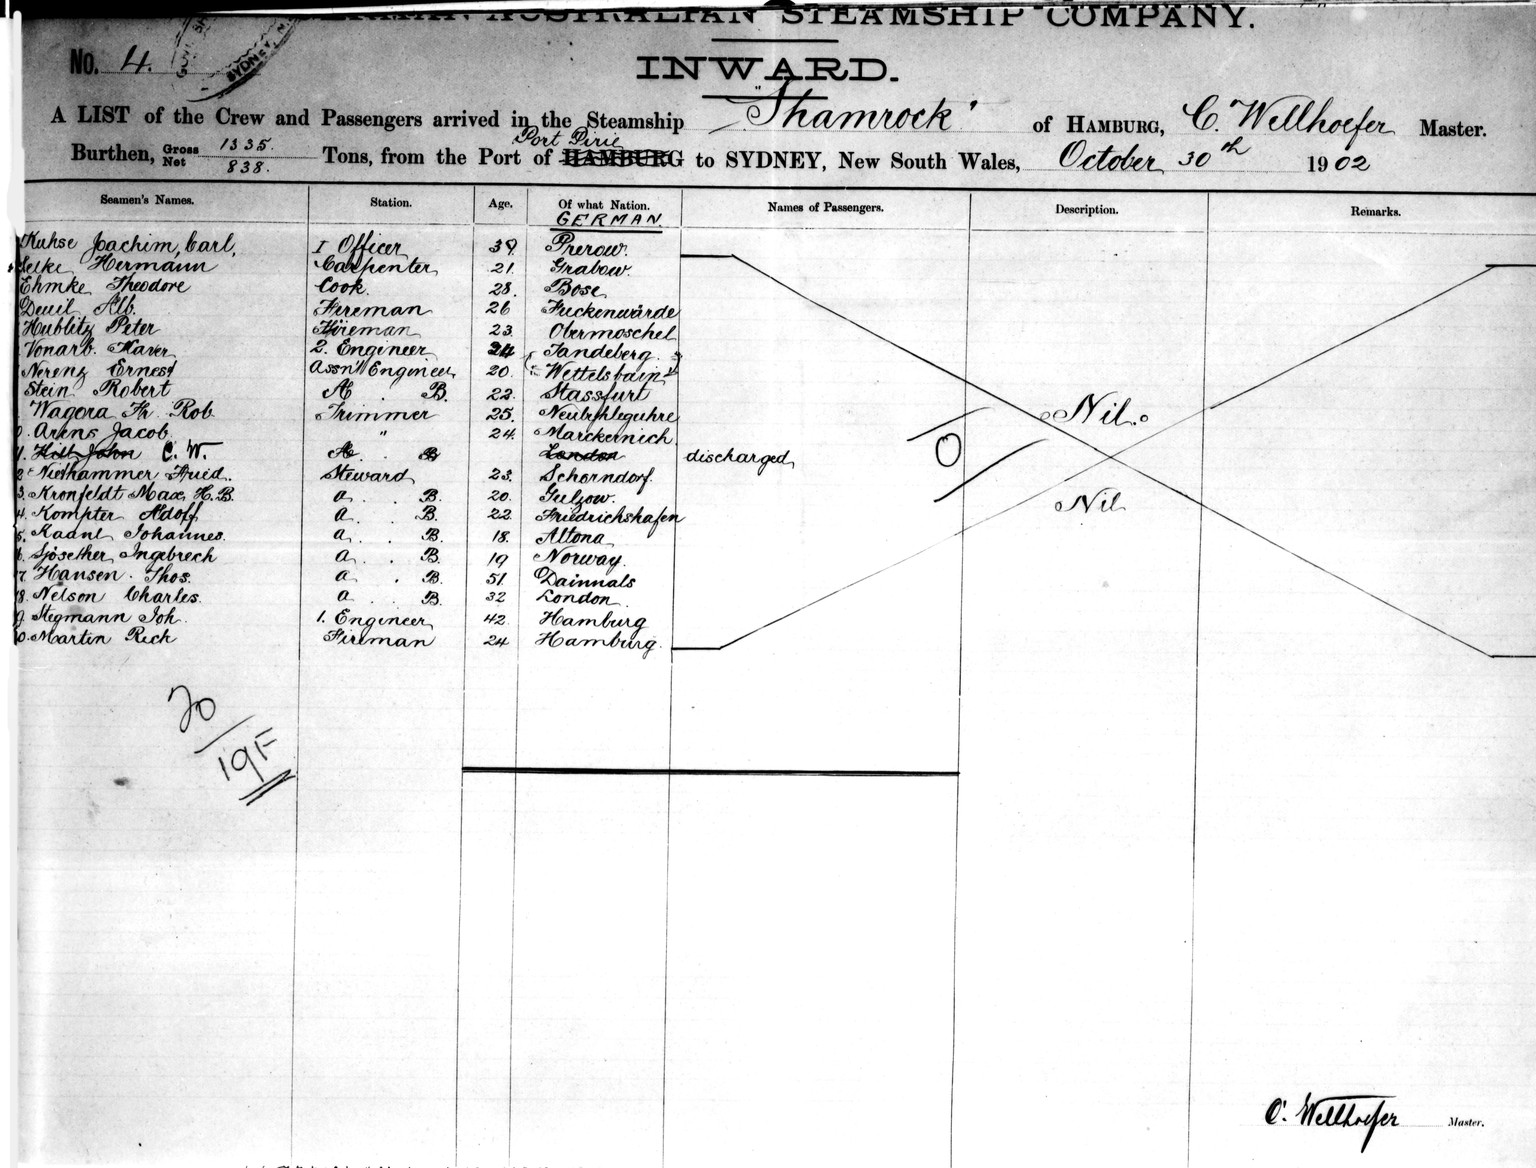 GERMAN AUSTRALIAN STEAMSHIP COMPANY.
No. 4.
SYDNEY
INWARD.
A LIST of the Crew and Passengers arrived in the Steamship "Shamrock" of HAMBURG, C. Wellhoefer Master.
Burthen, Gross 1335. Net 838. Tons, from the Port of HAMBURG Port Pirie to SYDNEY, New South Wales, October 30th 1902
Seamen's Names. Station. Age. Of what Nation. Names of Passengers. Description. Remarks.
GERMAN
Kuhse Joachim, Carl, I Officer 39 Prerow.
Selke Hermann Carpenter 21. Grabow.
Ehmke Theodore Cook. 28. Bose
Deuil Alb. Fireman 26 Fuckenwärde
Hublitz Peter Fireman 23 Obermoschel
Vonarb. Xaver 2. Engineer 24 Tandeberg.
Nerenz Ernest Assnt Engineer 20. Wettelsbain
Stein Robert A. B. 22. Stassfurt
Wagera Fr. Rob Trimmer 25. Neubuhleguhre
0. Arens Jacob " 24. Marckernich
1. Hill John C. W. A. B London discharged
2 Niethammer Fried. Steward 23. Schorndorf.
3. Kronfeldt Max, H. B. a. B. 20. Gulzow.
4. Kompter Adolf a. B. 22. Friedrichshafen
5. Kaant Johannes. a. B. 18. Altona
6. Sjösether Ingebrech a. B. 19 Norway.
7. Hansen. Thos. a. B. 51. Dainnals
8. Nelson Charles. a. B. 32 London
9. Stegmann Joh. 1. Engineer 42. Hamburg
0. Martin Rich Fireman 24 Hamburg.
Nil.
0
Nil
20
19F
C. Wellhoefer Master.